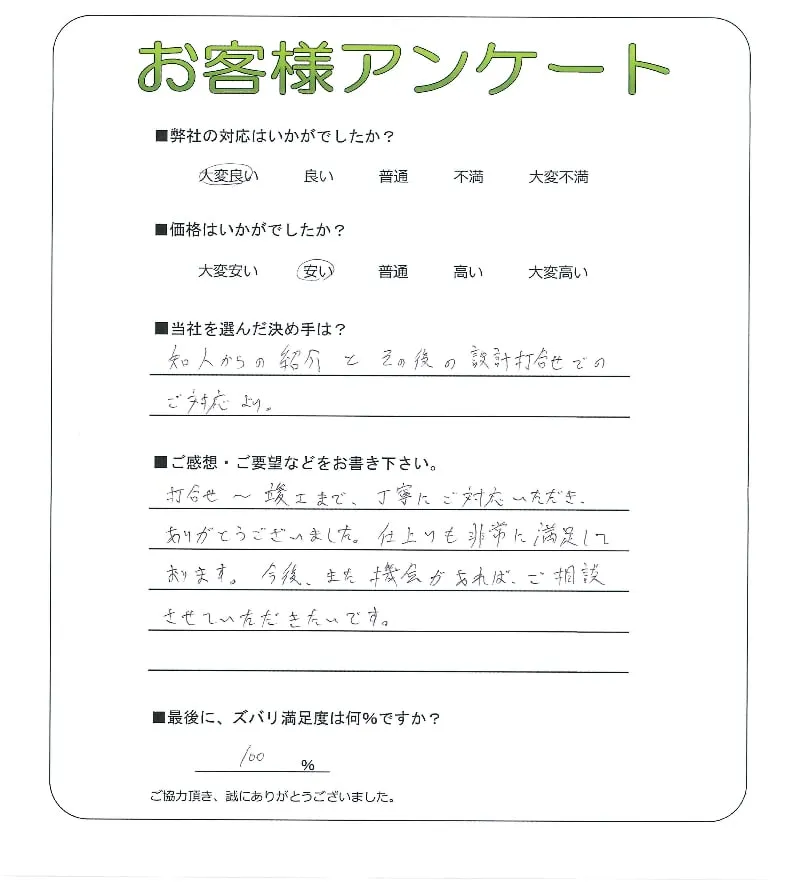 お客様アンケート
■弊社の対応はいかがでしたか？
大変良い 良い 普通 不満 大変不満
■価格はいかがでしたか？
大変安い 安い 普通 高い 大変高い
■当社を選んだ決め手は？
知人からの紹介とその後の設計打合せでの
ご対応より。
■ご感想・ご要望などをお書き下さい。
打合せ～竣工まで、丁寧にご対応いただき、
ありがとうございました。仕上りも非常に満足して
おります。今後、また機会があれば、ご相談
させていただきたいです。
■最後に、ズバリ満足度は何％ですか？
100 ％
ご協力頂き、誠にありがとうございました。